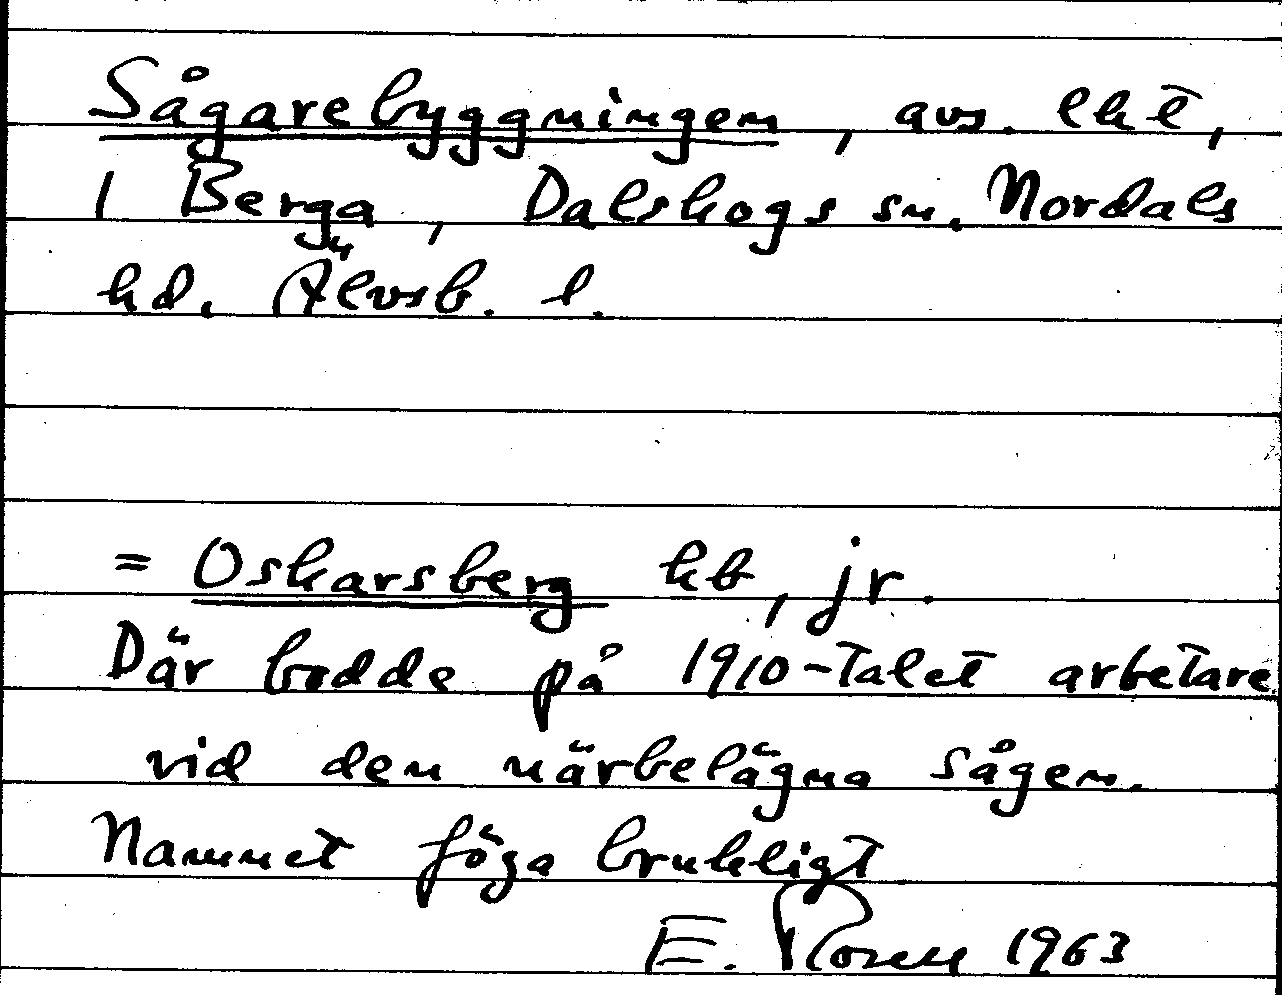 Sågarebyggningen, avs. lht,
1 Berga, Dalskogs sn. Nordals
hd. Älvsb. l.
= Oskarsberg hb, jr.
Där bodde på 1910-talet arbetare
vid den närbelägna sågen.
Namnet föga brukligt
E. Rosell 1963